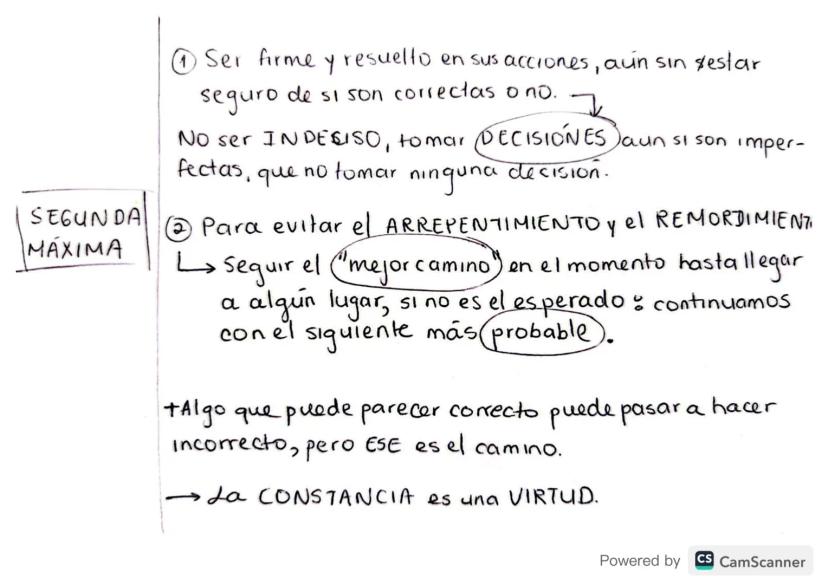 ① Ser firme y resuelto en sus acciones, aún sin estar
seguro de si son correctas o no.
NO ser INDESISO, tomar DECISIÓNES aun si son imper-
fectas, que no tomar ninguna decisión.
SEGUNDA
MÁXIMA
② Para evitar el ARREPENTIMIENTO y el REMORDIMIENT
↳ Seguir el "mejor camino" en el momento hasta llegar
a algún lugar, si no es el esperado : continuamos
con el siguiente más probable.
+Algo que puede parecer correcto puede pasar a hacer
incorrecto, pero ESE es el camino.
→ La CONSTANCIA es una VIRTUD.
Powered by CS CamScanner